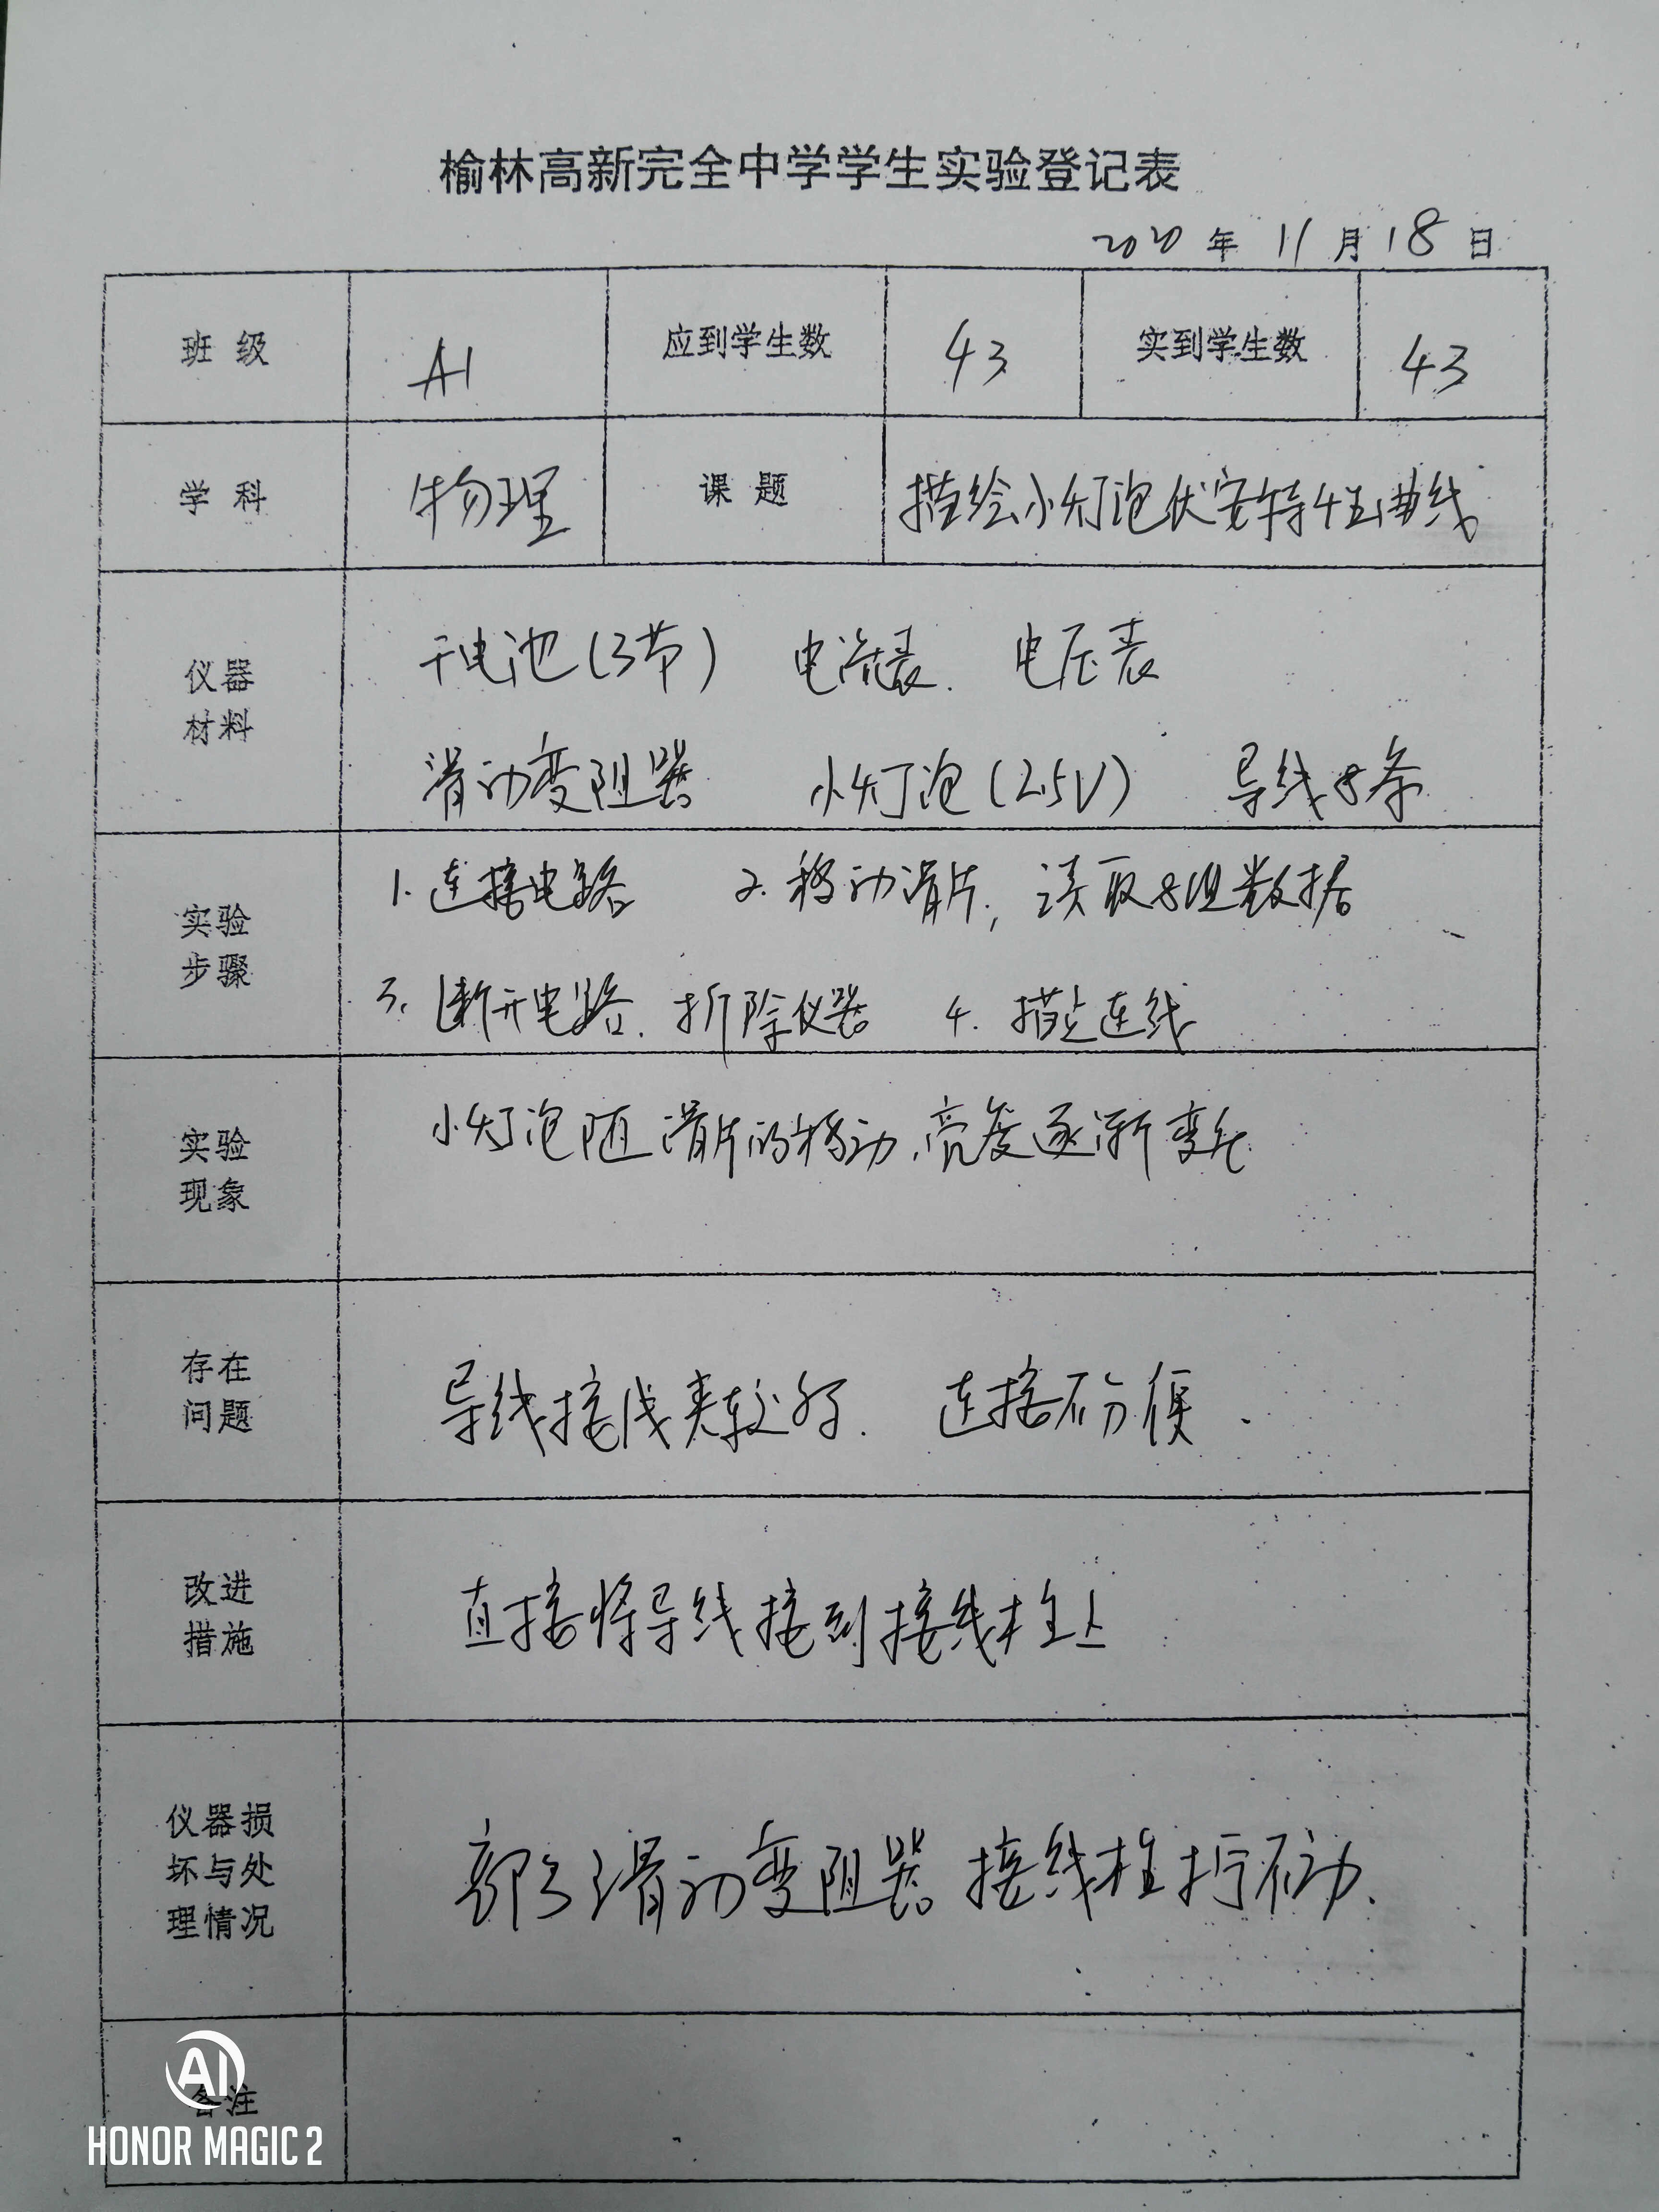 榆林高新完全中学学生实验登记表
2020 年 11 月 18 日
班级 A1 应到学生数 43 实到学生数 43
学科 物理 课题 描绘小灯泡伏安特性曲线
仪器
材料
干电池(3节) 电流表. 电压表
滑动变阻器 小灯泡(2.5V) 导线8条
实验
步骤
1. 连接电路 2. 移动滑片, 读取8组数据
3. 断开电路. 拆除仪器 4. 描点连线
实验
现象
小灯泡随滑片的移动,亮度逐渐变化
存在
问题
导线接线夹较. 连接不方便.
改进
措施
直接将导线接到接线柱上
仪器损
坏与处
理情况
部分滑动变阻器接线柱拧不动.
备注
AI
HONOR MAGIC 2